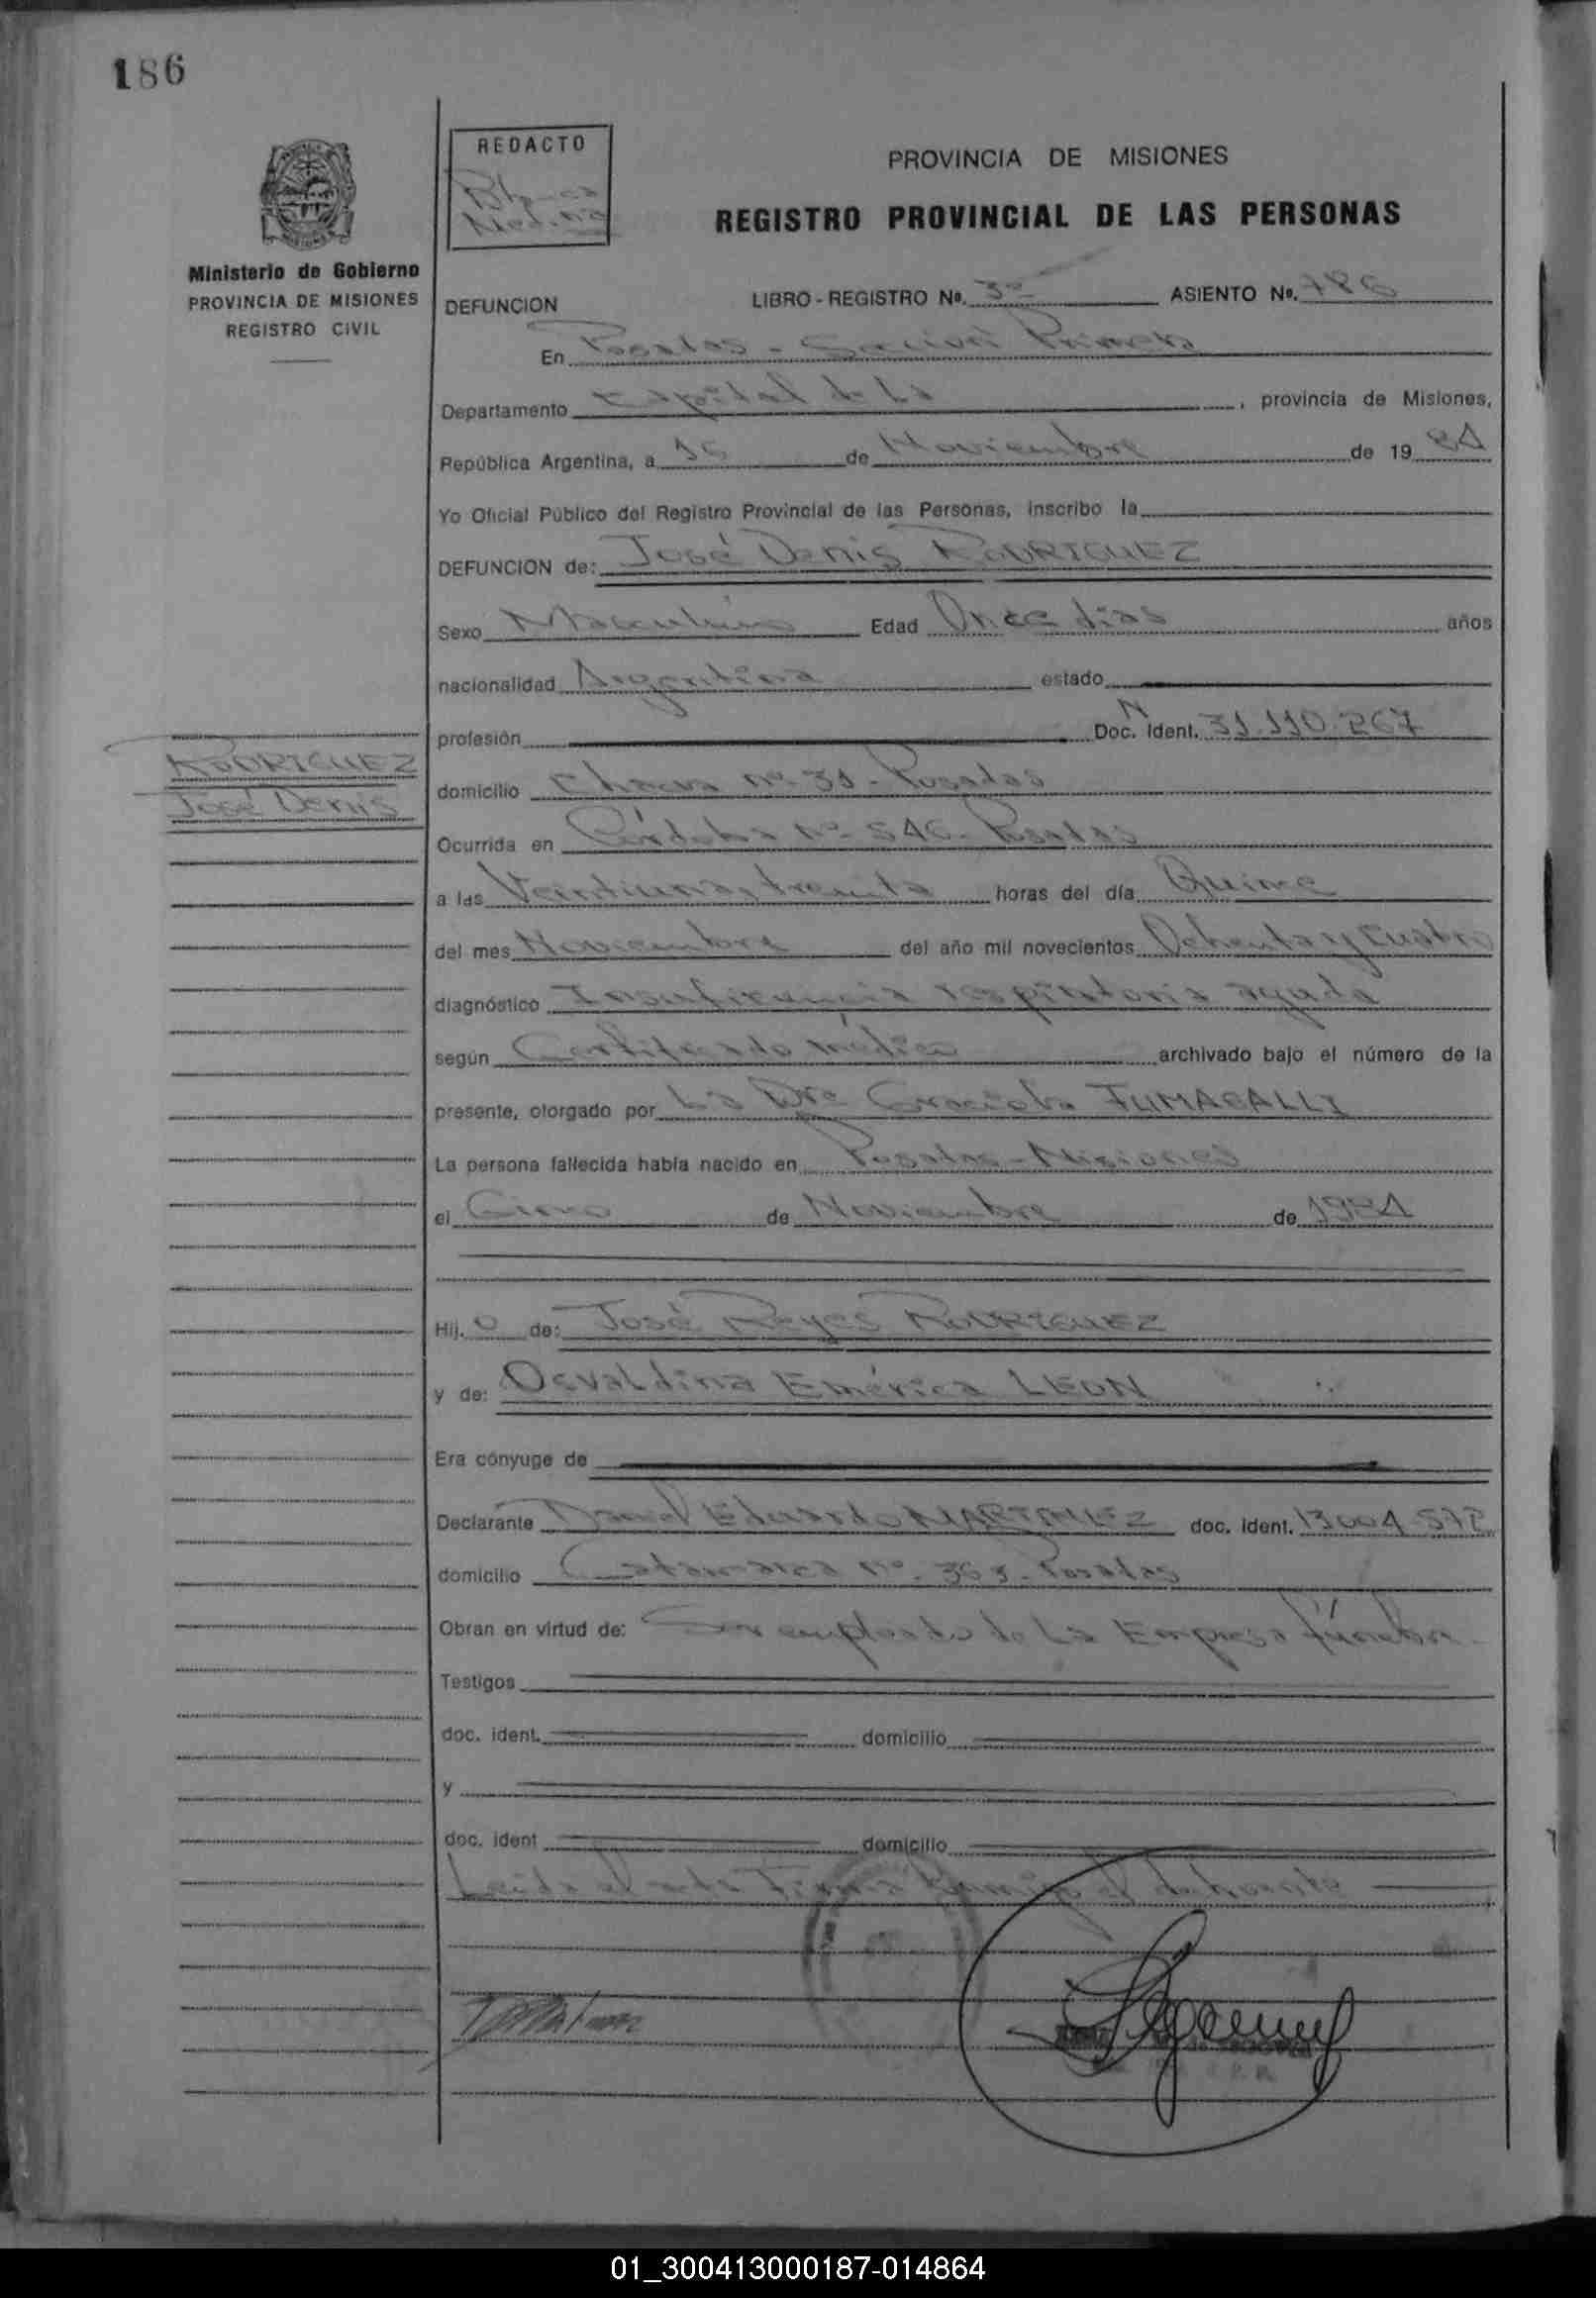 186
REDACTO
PROVINCIA DE MISIONES
REGISTRO PROVINCIAL DE LAS PERSONAS
Ministerio de Gobierno
PROVINCIA DE MISIONES
REGISTRO CIVIL
DEFUNCION LIBRO - REGISTRO Nº. 3º ASIENTO Nº. 786
En Posadas - Sección Primera
Departamento Capital de la, provincia de Misiones,
República Argentina, a 16 de Noviembre de 1984
Yo Oficial Público del Registro Provincial de las Personas, inscribo la
DEFUNCION de: José Denis RODRIGUEZ
Sexo Masculino Edad Once días años
nacionalidad Argentina estado
profesión Doc. N Ident. 31.110.267
RODRIGUEZ
José Denis
domicilio Chacra nº 31 - Posadas
Ocurrida en Córdoba Nº 546 - Posadas
a las Veintiuna, treinta horas del día Quince
del mes Noviembre del año mil novecientos Ochenta y cuatro
diagnóstico Insuficiencia respiratoria aguda
según Certificado médico archivado bajo el número de la
presente, otorgado por La Dra Graciela FUMAGALLI
La persona fallecida había nacido en Posadas - Misiones
el Cinco de Noviembre de 1984
Hij. o de: José Reyes RODRIGUEZ
y de: Osvaldina Emérica LEON
Era cónyuge de
Declarante Eduardo MARTINEZ doc. ident. 13004
domicilio Catamarca nº. 363 - Posadas
Obran en virtud de: Ser empleado de la Empresa fúnebre
Testigos
doc. ident. domicilio
y
doc. ident domicilio
Leída el acta Firma conmigo el declarante
01_300413000187-014864